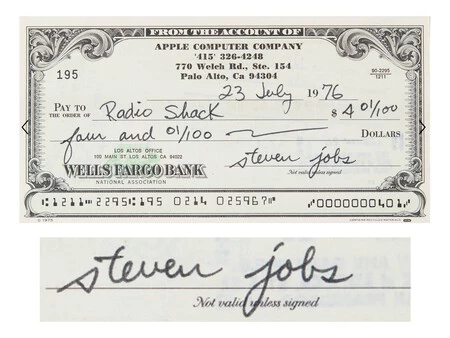 FROM THE ACCOUNT OF
APPLE COMPUTER COMPANY
'415' 326-4248
770 Welch Rd., Ste. 154
Palo Alto, Ca 94304
195
90-2295
1211
23 July 1976
PAY TO
THE ORDER OF Radio Shack $ 4 01/100
four and 01/100 DOLLARS
LOS ALTOS OFFICE
100 MAIN ST LOS ALTOS 94022
WELLS FARGO BANK
NATIONAL ASSOCIATION
steven jobs
Not valid unless signed
1211 2295 195 0214 025967 0000000401
steven jobs
Not valid unless signed